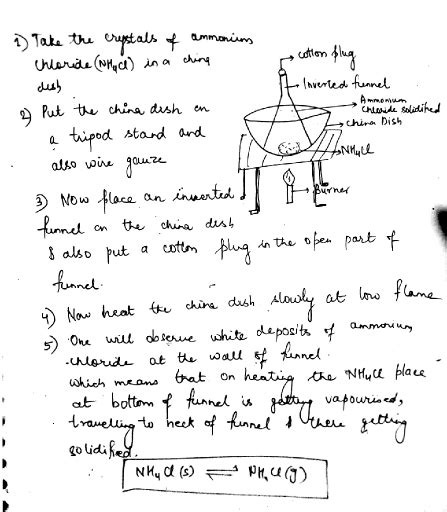 1) Take the crystals of ammonium
chloride (NH4Cl) in a china
dish
cotton plug
Inverted funnel
Ammonium
chloride solidified
china Dish
NH4Cl
Burner
2) Put the china dish on
a tripod stand and
also wire gauze
3) Now place an inverted
funnel on the china dish
& also put a cotton plug in the open part of
funnel.
4) Now heat the china dish slowly at low flame
5) One will observe white deposits of ammonium
chloride at the wall of funnel.
which means that on heating the NH4Cl place
at bottom of funnel is getting vapourised,
travelling to neck of funnel & there getting
solidified.
NH4Cl (s) ⇌ NH4Cl (g)